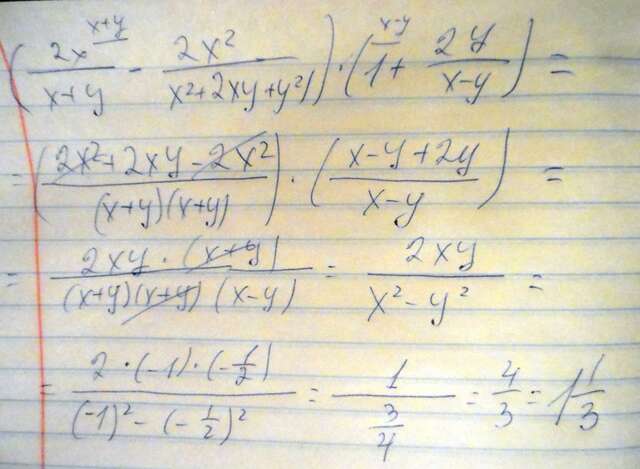 (2x^{x+y}/(x+y) - 2x²/(x²+2xy+y²)) · (1^{x-y} + 2y/(x-y)) =
= ((2x²+2xy-2x²)/((x+y)(x+y))) · ((x-y+2y)/(x-y)) =
= (2xy · (x+y))/((x+y)(x+y)(x-y)) = 2xy/(x²-y²) =
= (2·(-1)·(-1/2))/((-1)²-(-1/2)²) = 1/(3/4) = 4/3 = 1 1/3